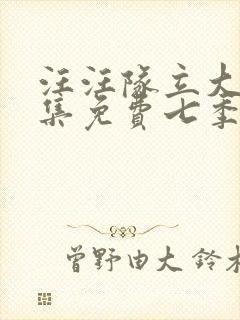 汪汪隊立大
集免費七季
曾野由大 鈴木